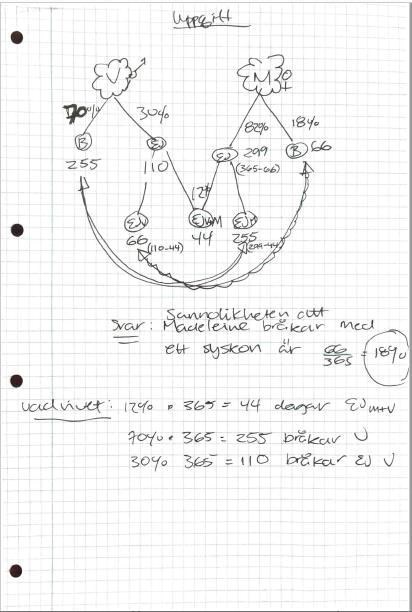 Uppgift
V
M
70%
30%
82%
18%
B
EJ
EJ
299
B
66
255
110
(365-66)
12%
EJ
EJ V+M
EJ
66
(110-44)
44
255
(299-44)
Sannolikheten att
Svar: Madeleine bråkar med
ett syskon är 66/365 = 18%
Vad vi vet: 12% • 365 = 44 dagar EJ M+V
70% • 365 = 255 bråkar V
30% 365 = 110 bråkar EJ V